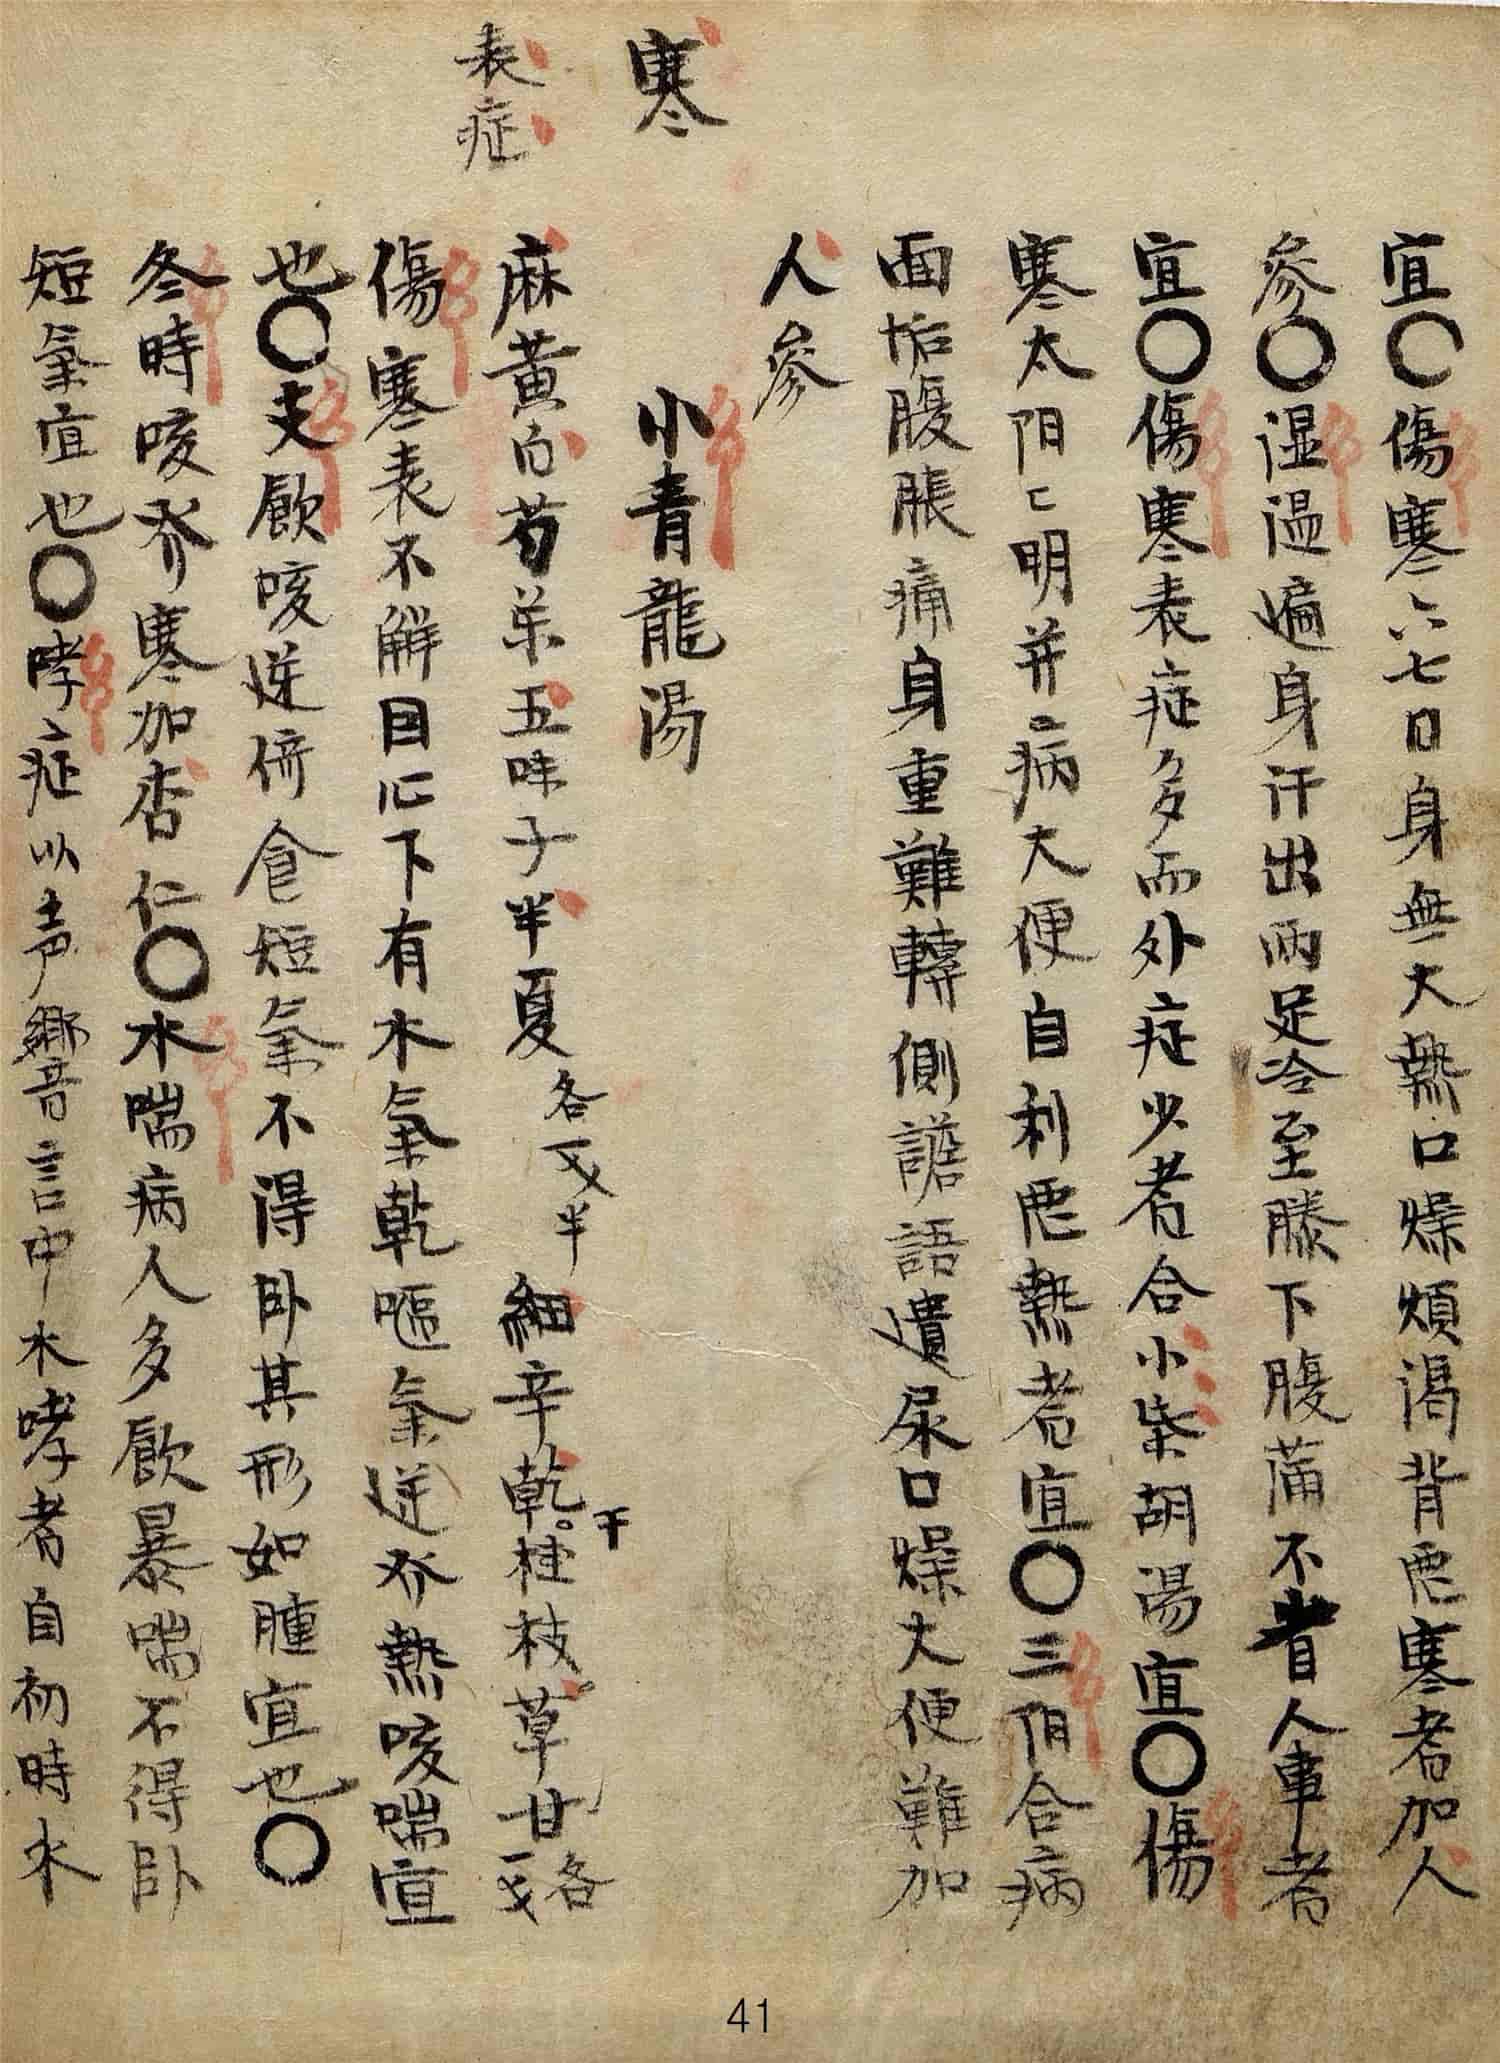 宜〇傷寒六七日身無大熱口燥煩渴背㤪寒者加人
參〇湿温遍身汗出兩足冷至膝下腹滿不省人事者
宜〇傷寒表症多而外症少者合小柴胡湯宜〇傷
寒太阳〻明并病大便自利㤪熱者宜〇三阴合病
面垢腹脹痛身重難轉側譫語遺尿口燥大便難加
人參
寒
小青龍湯
表症
麻黄白芍薬五味子半夏各一戔半細辛乾干桂枝草甘各一戔
傷寒表不解因心下有水氣乾嘔氣逆發熱咳喘宜
也〇支飮咳逆倚食短氣不得卧其形如腫宜也〇
冬時咳發寒加杏仁〇水喘病人多飮暴喘不得卧
短氣宜也〇哮症以声響言中水哮者自初時水
41